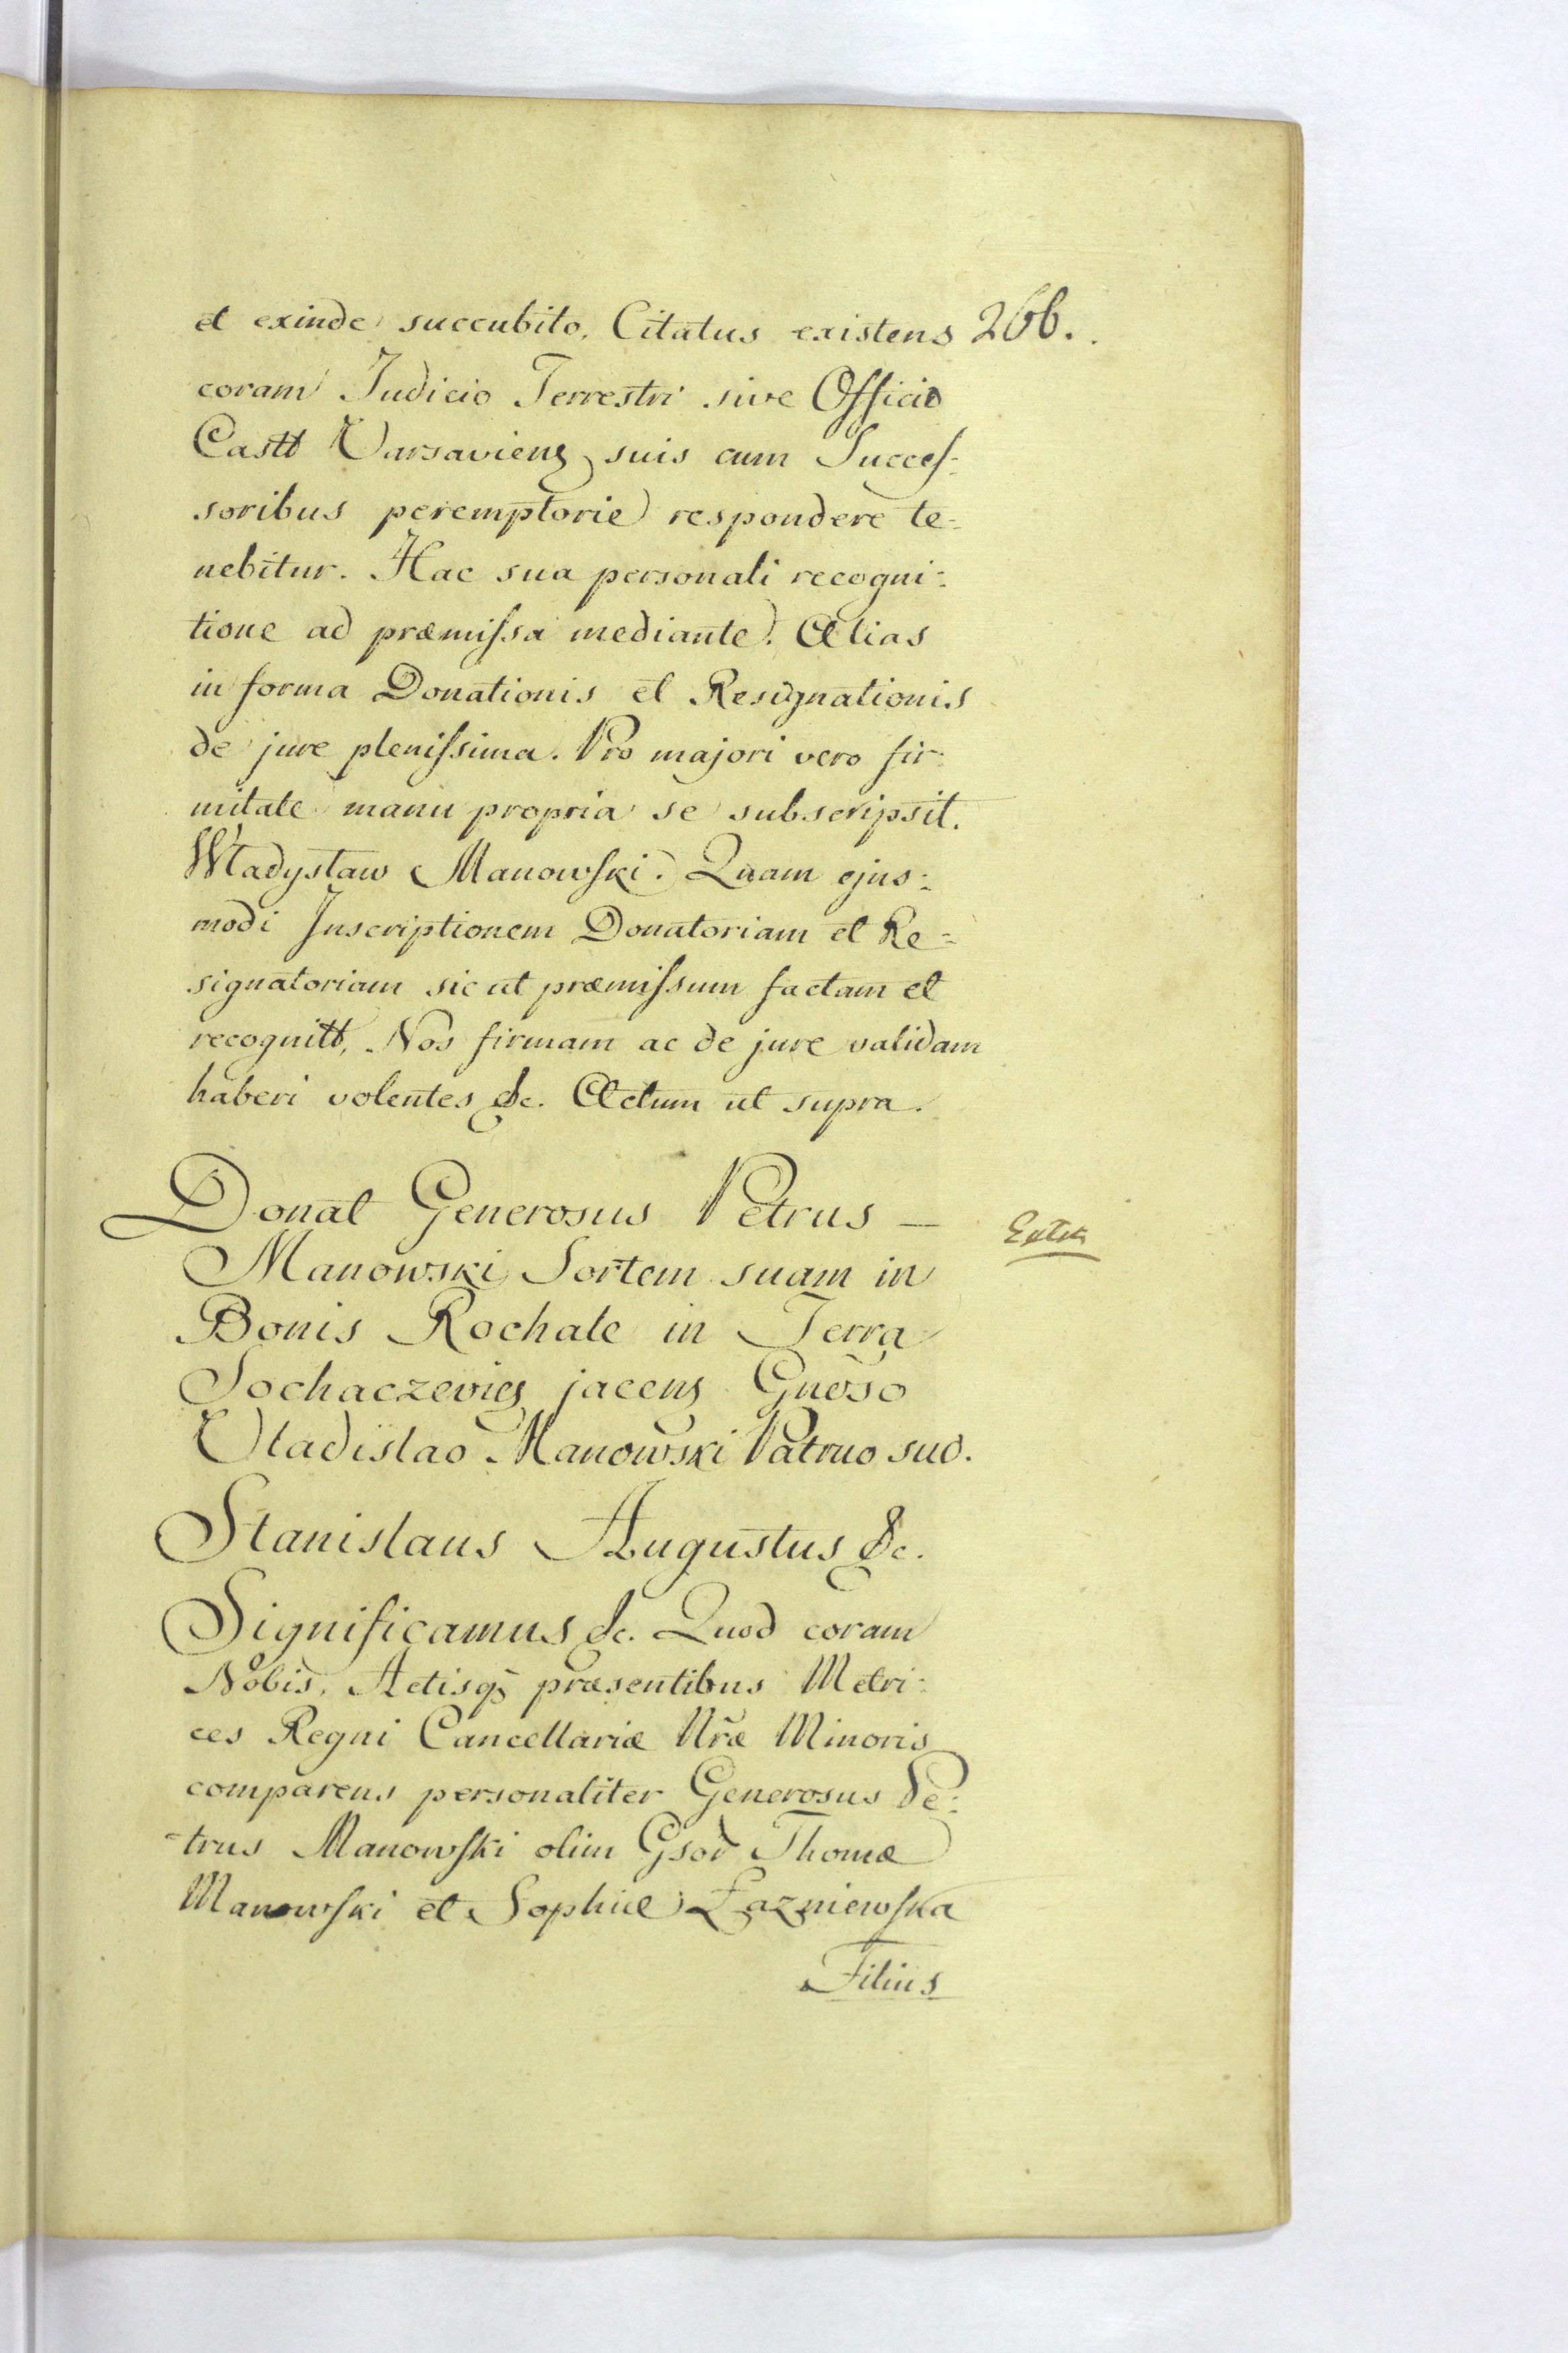 et exinde succubito. Citatus existens 266.
coram Judicio Terrestri sive Officio
Castt Varsaviens suis cum Succes-
soribus peremptorie respondere te-
nebitur. Hac sua personali recogni-
tione ad præmissa mediante. Alias
in forma Donationis et Resignationis
de jure plenissima. Pro majori vero fir-
mitate manu propria se subscripsit.
Władysław Manowski. Quam ejus-
modi Inscriptionem Donatoriam et Re-
signatoriam sic ut præmissum factam et
recognitt, Nos firmam ac de jure validam
haberi volentes &c. Actum ut supra.
Donat Generosus Petrus —
Manowski Sortem suam in
Bonis Rochale in Terra
Sochaczevien jacens Gnoso
Vladislao Manowski Patruo suo.
Stanislaus Augustus &c.
Significamus &c. Quod coram
Nobis, Actisq; præsentibus Metri-
ces Regni Cancellariæ Nræ Minoris
comparens personaliter Generosus Pe-
-trus Manowski olim Gsor Thomæ
Manowski et Sophiæ Łazniewska
Filius